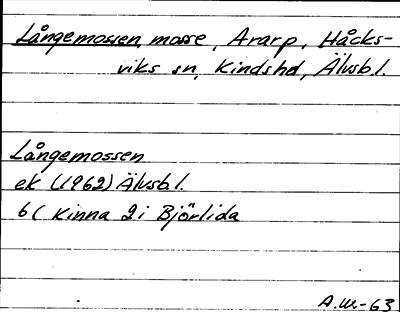 Långemossen, mosse, Ararp, Håcks-
viks sn, Kindshd, Älvsb.l.
Långemossen
ek (1962) Älvsb.l.
6( Kinna 2i Björlida
A.W-63